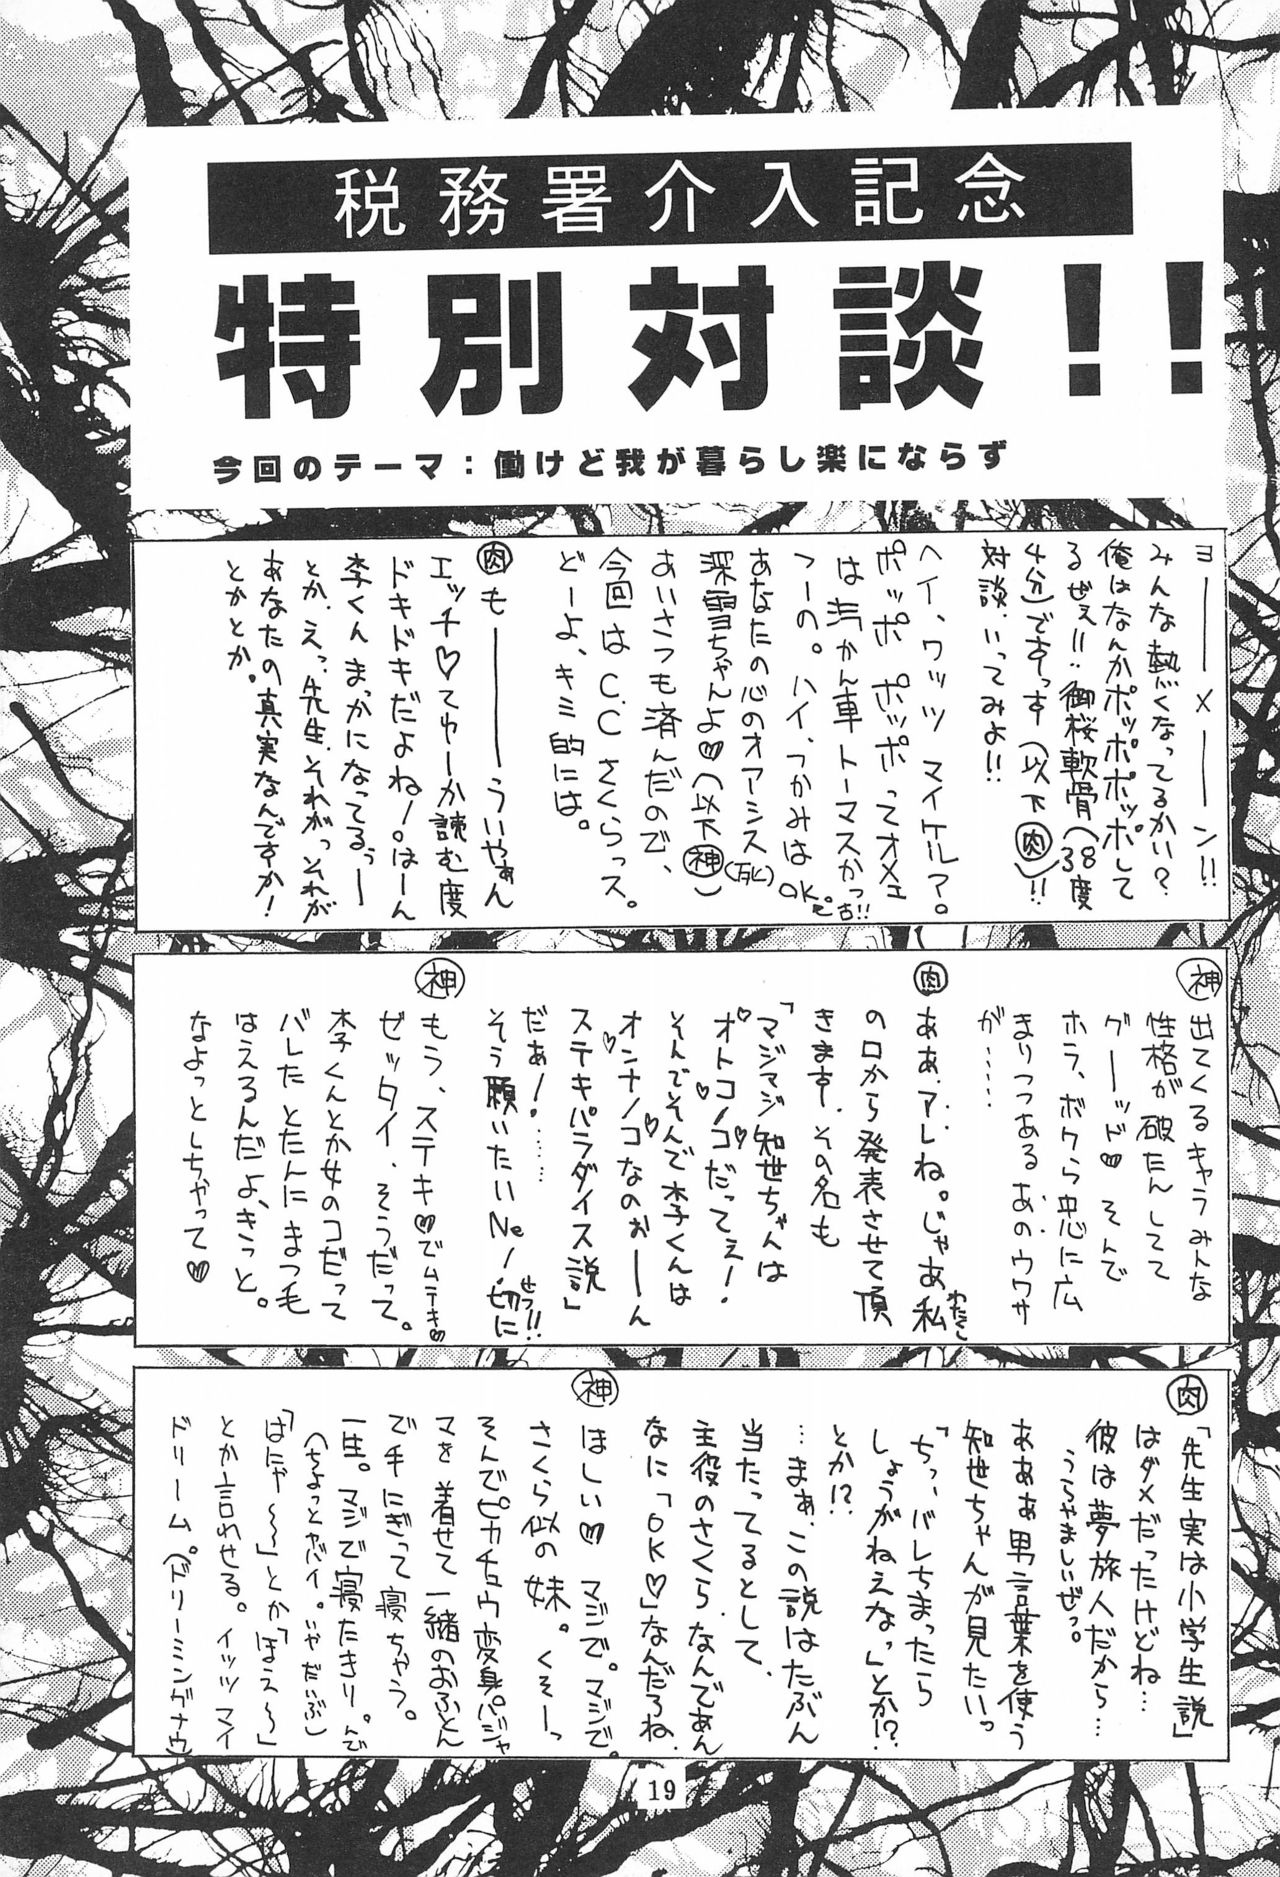 税務署介入記念
特別対談!!
今回のテーマ:働けど我が暮らし楽にならず
ヨーーメーーン!!
みんな熱くなってるかい?
俺はなんかポッポポッポして
るぜぇ!!:御桜軟骨(38度
4分)ですっす(以下肉)!!
対談、いってみよ!!
ヘイ、ワッツ マイケル?。
ポッポ ポッポってオメェ
は汽かん車トーマスかっ
つーの。ハイ、つかみはOK。古!!
あなたの心のオアシス(死)
深雪ちゃんよ♡(以下神)
あいさつも済んだので、
今回はC.Cさくらっス。
どーよ、キミ的には。
肉 もーーーーういやぁん
エッチ♡てゆーか読む度
ドキドキだよね!。はーん
李くんまっかになってるぅー
とか、えっ、先生、それがっそれが
あなたの真実なんですか!
とかとか。
神 出てくるキャラみんな
性格が破たんしてて
グーッド♡そんで
ホラ、ボクら忠に広
まりつつあるあのウワサ
が……
肉 ああ、アレね。じゃあ私わたくし
の口から発表させて頂
きます、その名も
「マジマジ知世ちゃんは
オトコノコだってぇ!
そんでそんで李くんは
オンナノコなのぉーーん
ステキパラダイス説」
だぁ!……
そう願いたいNe!切にせつ!!
神 もう、ステキ♡でムテキ♡
ゼッタイ、そうだって。
李くんとか女のコだって
バレたとたんにまつ毛
はえるんだよ、きっと。
なよっとしちゃって♡
肉 「先生実は小学生説」
はダメだったけどね…
彼は夢旅人だから…
うらやましいぜっ。
あああ男言葉を使う
知世ちゃんが見たいっ
「ちっ、バレちまったら
しょうがねえなっ」とか!?
とか!?
…まぁ、この説はたぶん
当たってるとして、
主役のさくら、なんであん
なに「OK♡」なんだろね。
神 ほしい♡マジで。マジで。
さくら似の妹。くそーっ
そんでピカチュウ変身パジャ
マを着せて一緒のおふとん
で手にぎって寝ちゃう。
一生。マジで寝たきり。んで
(ちょっとヤバイ。いやだいぶ)
「はにゃ〜〜」とか「ほえ〜〜」
とか言わせる。イッツ マイ
ドリーム。(ドリーミングナウ)
19